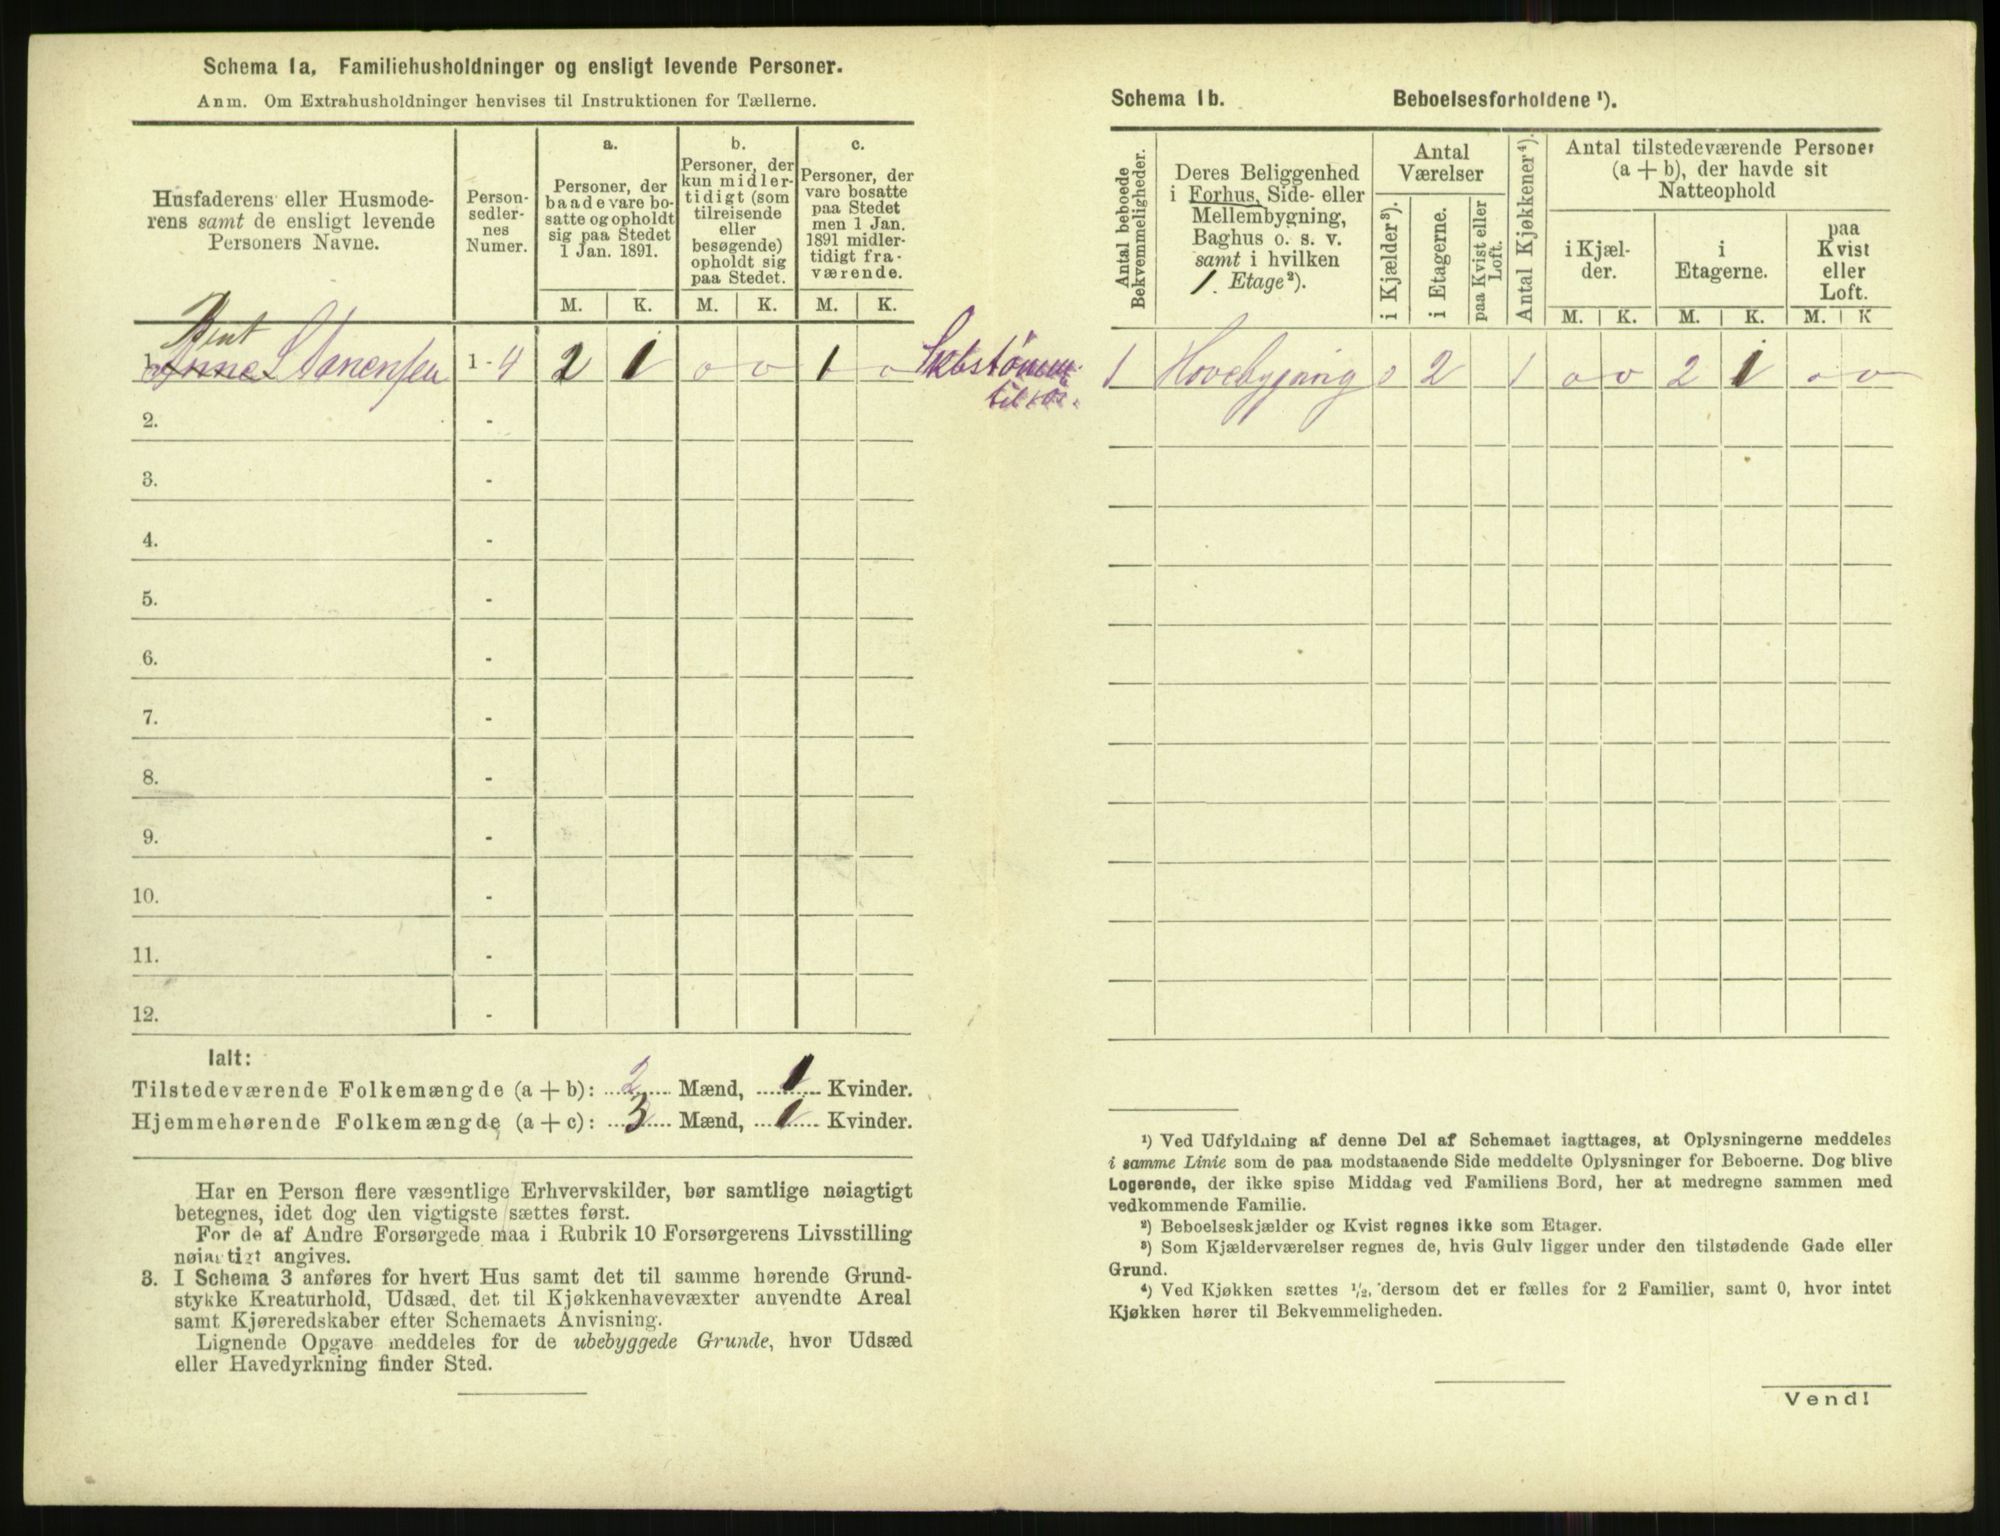 Schema 1a. Familiehusholdninger og ensligt levende Personer.
Anm. Om Extrahusholdninger henvises til Instruktionen for Tællerne.
Husfaderens eller Husmode-
rens samt de ensligt levende
Personers Navne.
Person-
sedler-
nes
Numer.
a.
Personer, der
baade vare bo-
satte og opholdt
sig paa Stedet
1 Jan. 1891.
b.
Personer, der
kun midler-
tidigt (som
tilreisende
eller
besøgende)
opholdt sig
paa Stedet.
c.
Personer, der
vare bosatte
paa Stedet
men 1 Jan.
1891 midler-
tidigt fra-
værende.
M. K. M. K. M. K.
Bent
1. Anne 1 - 4 2 1 0 0 1 0
2. -
3. -
4. -
5. -
6. -
7. -
8. -
9. -
10. -
11. -
12. -
Ialt:
Tilstedeværende Folkemængde (a + b): 2 Mænd, 1 Kvinder.
Hjemmehørende Folkemængde (a + c): 3 Mænd, 1 Kvinder.
Har en Person flere væsentlige Erhvervskilder, bør samtlige nøiagtigt
betegnes, idet dog den vigtigste sættes først.
For de af Andre Forsørgede maa i Rubrik 10 Forsørgerens Livsstilling
nøiagtigt angives.
3. I Schema 3 anføres for hvert Hus samt det til samme hørende Grund-
stykke Kreaturhold, Udsæd, det til Kjøkkenhavevæxter anvendte Areal
samt Kjøreredskaber efter Schemaets Anvisning.
Lignende Opgave meddeles for de ubebyggede Grunde, hvor Udsæd
eller Havedyrkning finder Sted.
Schema 1b. Beboelsesforholdene ¹).
Antal beboede
Bekvemmeligheder.
Deres Beliggenhed
i Forhus, Side- eller
Mellembygning,
Baghus o. s. v.
samt i hvilken
1. Etage²).
Antal
Værelser
i Kjælder³).
i Etagerne.
paa Kvist eller
Loft.
Antal Kjøkkener⁴).
Antal tilstedeværende Personer
(a + b), der havde sit
Natteophold
i Kjæl-
der.
i
Etagerne.
paa
Kvist
eller
Loft.
M. K. M. K. M. K
1 Hovebygning 0 2 1 0 0 2 1 0 0
¹) Ved Udfyldning af denne Del af Schemaet iagttages, at Oplysningerne meddeles
i samme Linie som de paa modstaaende Side meddelte Oplysninger for Beboerne. Dog blive
Logerende, der ikke spise Middag ved Familiens Bord, her at medregne sammen med
vedkommende Familie.
²) Beboelseskjælder og Kvist regnes ikke som Etager.
³) Som Kjælderværelser regnes de, hvis Gulv ligger under den tilstødende Gade eller
Grund.
⁴) Ved Kjøkken sættes ½, dersom det er fælles for 2 Familier, samt 0, hvor intet
Kjøkken hører til Bekvemmeligheden.
Vend!